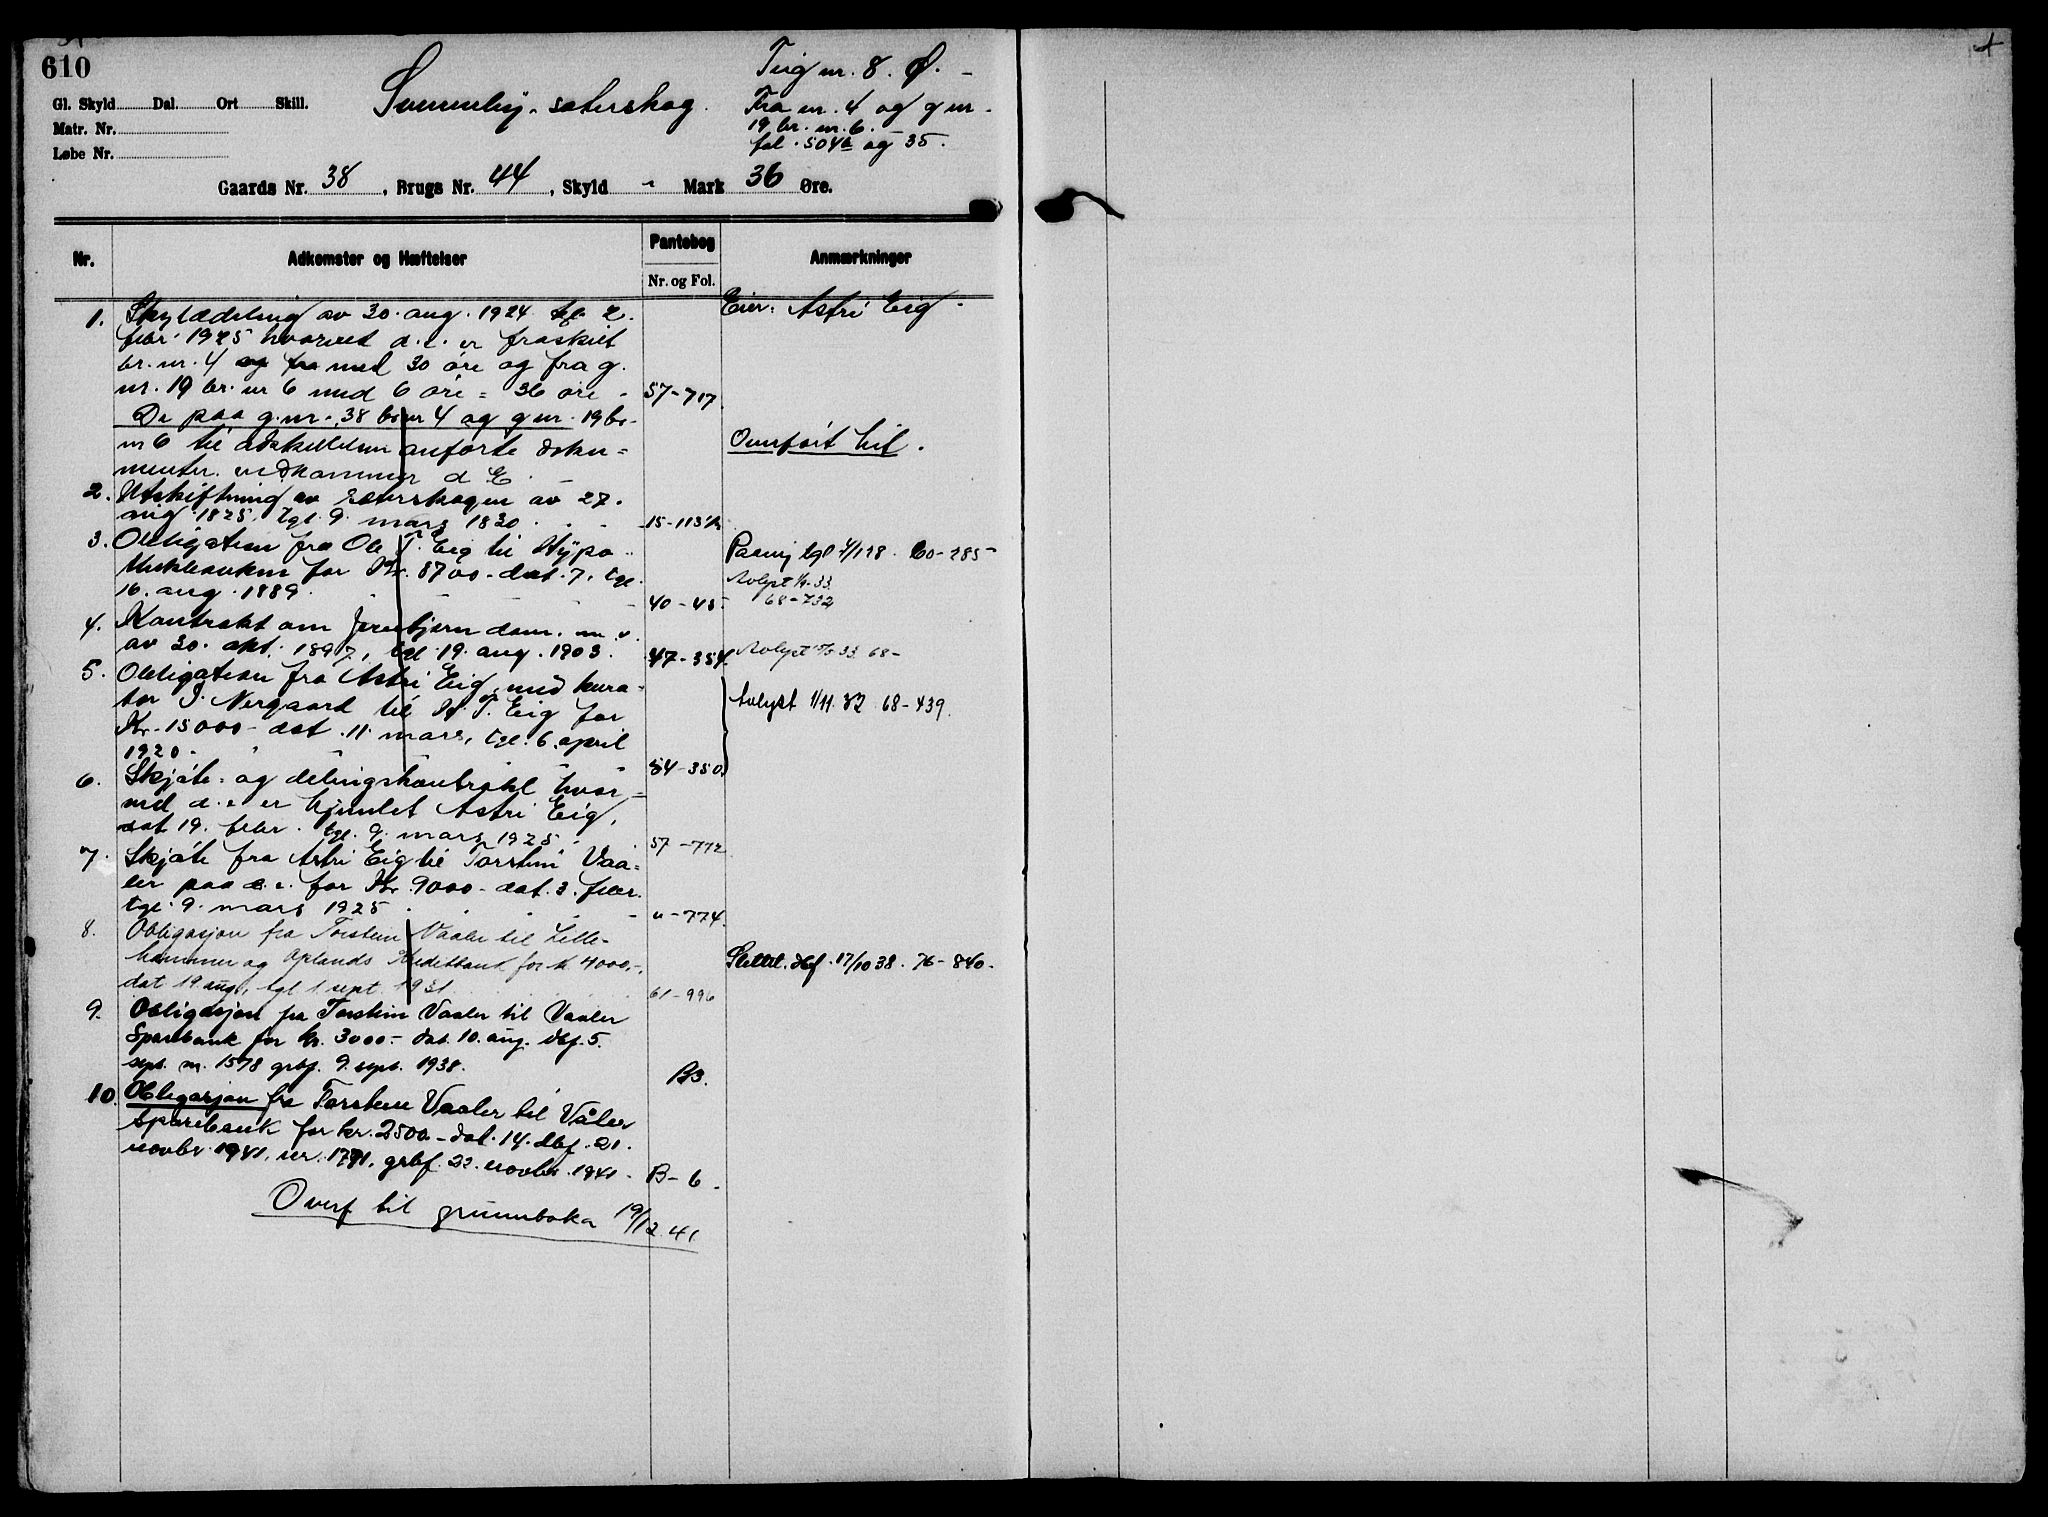 610
Teig nr. 8. Ø. -
Gl. Skyld Dal. Ort Skill.
sæterskog.
Fra nr. 4 og g nr.
Matr. Nr.
19 br. nr. 6.
Løbe Nr.
fol. 504b og 35.
Gaards Nr. 38, Brugs Nr. 44, Skyld " Mark 36 Øre.
Nr.
Adkomster og Hæftelser
Pantebog
Nr. og Fol.
Anmærkninger
1. Skylddeling av 30. aug. 1924 tgl. 2.
Eier: Astri Eig.
febr. 1925 hvorved d. e. er fraskilt
br. nr. 4 og fra med 30 øre og fra g.
nr. 19 br. nr 6 med 6 øre = 36 øre - 57-717.
De paa g. nr. 38 br nr 4 og g nr. 19 br.
nr 6 til adskillelsen anførte doku=
Overført hit.
menter vedkommer d E. -
2. Utskiftning av sæterskogen av 27.
aug. 1825, tgl. 9. mars 1830. - 15-113b
3. Obligation fra Ole T. Eig til Hypo-
Paaviq tgl 4/1 28. 60-285-
thekbanken for Kr. 8700- dat. 7. tgl.
Avlyst 1/9-33.
16. aug. 1889. - 40-45.
68-732
4. Kontrakt om dam. m. v.
av 30. okt. 1897, tgl. 19. aug. 1903. 47-354.
Avlyst 33. 68-
5. Obligation fra Astri Eig med kura-
tor J. Nergaard til N. T. Eig for
Avlyst 1/11 32 68-439.
Kr. 15000- dat. 11. mars, tgl. 6. april
1920. - 54-350.
6. Skjøte- og delingskontrakt hvor=
ved d. e. er hjemlet Astri Eig,
dat 19. febr. tgl. 9. mars 1925. 57-772
7. Skjøte fra Astri Eig til Torstein Vaa=
ler paa d. e. for Kr. 9000- dat. 3. febr.
tgl. 9. mars 1925. - " - 774.
8. Obligasjon fra Torstein Vaaler til Lille-
hammer og Oplands Kreditbank for kr 4000,-,
Slettet. dbf. 17/10 38. 76-840.
dat 19 aug, tgl 1. sept. 1931. 61-996
9. Obligasjon fra Torstein Vaaler til Vaaler
Sparebank for kr. 3000.- dat. 10. aug. dbf. 5.
sept. nr. 1578 grbf. 9. sept. 1938. B3.
10. Obligasjon fra Torstein Vaaler til Våler
Sparebank for kr. 2500.- dat. 14. dbf. 21.
novbr. 1941, nr. 1791, grbf. 22. novbr. 1941. B- 6.
Overf til grunnboka 19/12 41.